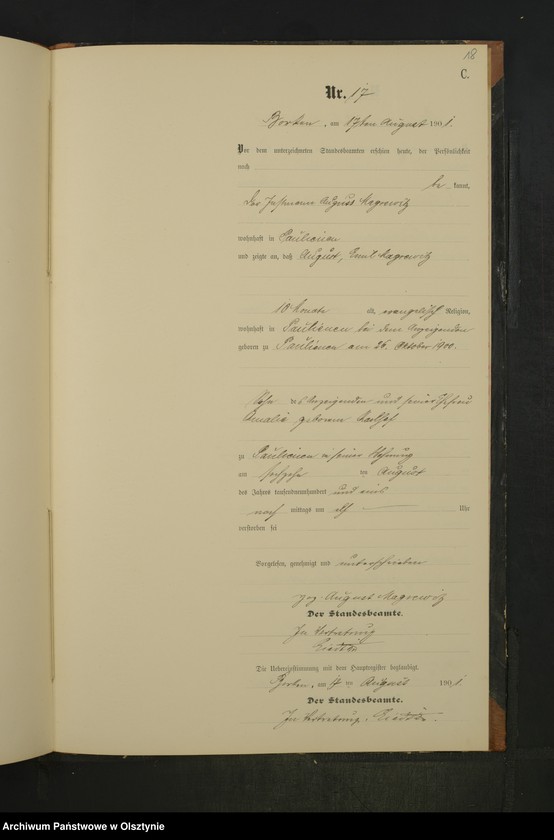 18
C.
Nr. 17
Borken, am 17ten August 1901.
Vor dem unterzeichneten Standesbeamten erschien heute, der Persönlichkeit
nach
be kannt,
der Instmann August Magrowitz
wohnhaft in Paulienen
und zeigte an, daß August, Emil Magrowitz
10 Monate alt, evangelischer Religion,
wohnhaft in Paulienen bei dem Anzeigenden
geboren zu Paulienen am 26. Oktober 1900.
Sohn des Anzeigenden und seiner Ehefrau
Amalie geborenen
zu Paulienen in seiner Wohnung
am sechszehn ten August
des Jahres tausendneunhundert und eins
nach mittags um elf Uhr
verstorben sei
Vorgelesen, genehmigt und unterschrieben
gez. August Magrowitz
Der Standesbeamte.
In Vertretung
Die Uebereinstimmung mit dem Hauptregister beglaubigt.
Borken, am 17 ten August 1901.
Der Standesbeamte.
In Vertretung.
Archiwum Państwowe w Olsztynie